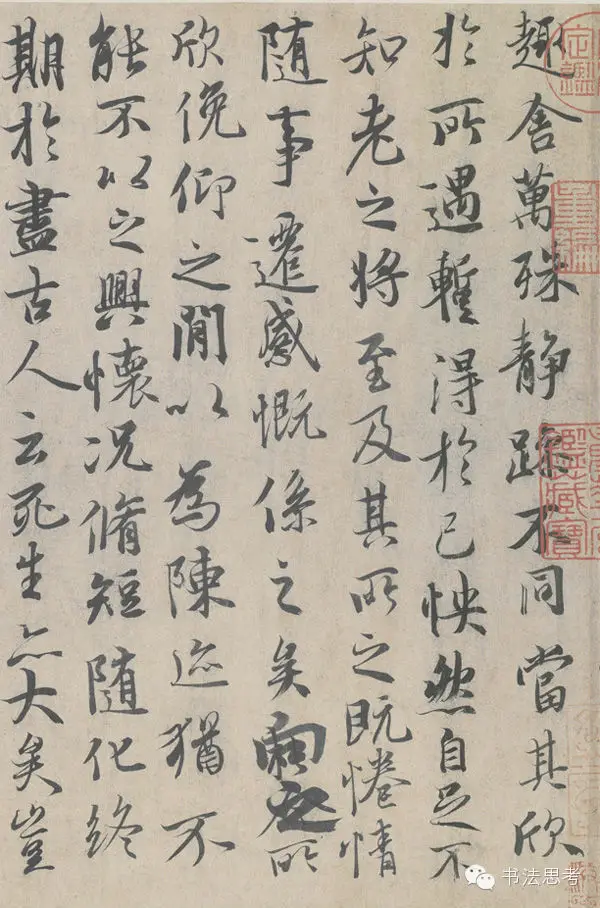 趣舍萬殊静躁不同當其欣
於所遇蹔得於己怏然自足不
知老之將至及其所之既惓情
隨事遷感慨係之矣向之所
欣俛仰之閒以為陳迹猶不
能不以之興懷況脩短隨化終
期於盡古人云死生亦大矣豈
书法思考